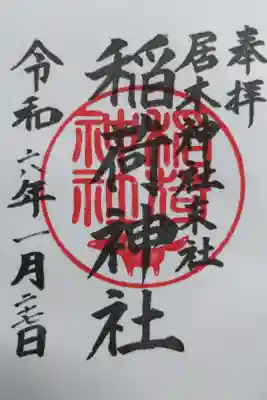 奉拝
居木神社末社
稲荷神社
令和六年一月二七日